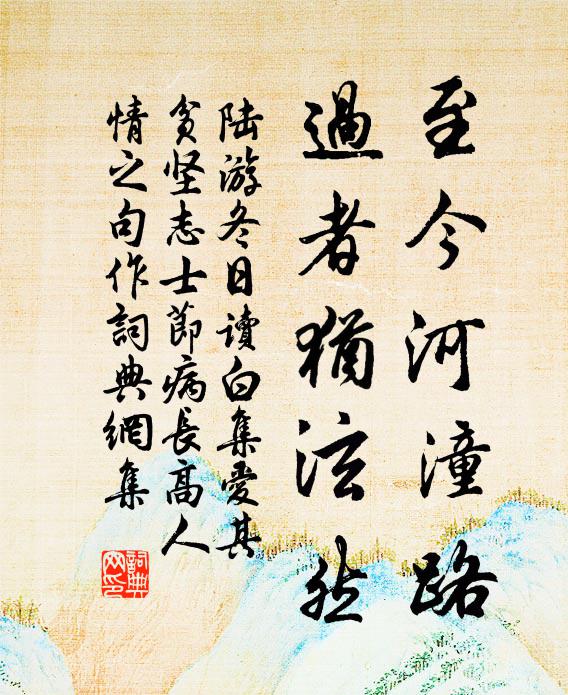 至今河潼路
過者猶泫然
陆游冬日读白集爱其
贫坚志士节病长高人
情之句作詞典網集
詞典網印